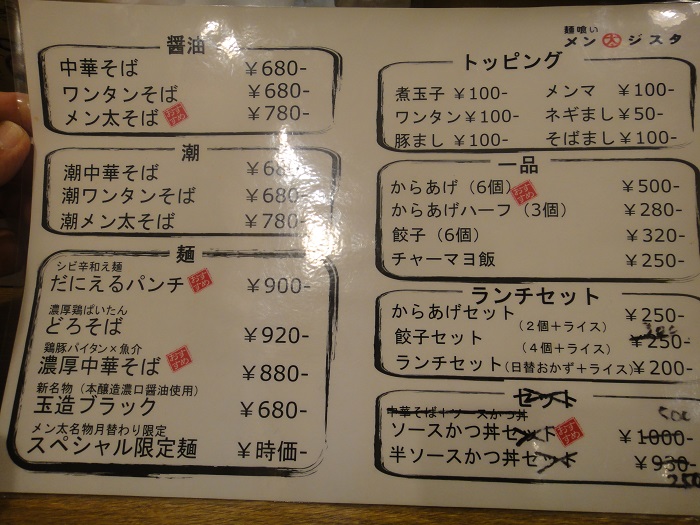 麺喰い
メン太ジスタ
醤油
中華そば ￥680-
ワンタンそば ￥680-
メン太そば おすすめ ￥780-
潮
潮中華そば ￥680-
潮ワンタンそば ￥680-
潮メン太そば ￥780-
麺
シビ辛和え麺
だにえるパンチ おすすめ ￥900-
濃厚鶏ぱいたん
どろそば ￥920-
鶏豚パイタン×魚介
濃厚中華そば おすすめ ￥880-
新名物（本醸造濃口醤油使用）
玉造ブラック ￥680-
メン太名物月替わり限定
スペシャル限定麺 ￥時価-
トッピング
煮玉子 ￥100- メンマ ￥100-
ワンタン ￥100- ネギまし ￥50-
豚まし ￥100- そばまし ￥100-
一品
からあげ（6個） おすすめ ￥500-
からあげハーフ（3個） ￥280-
餃子（6個） ￥320-
チャーマヨ飯 ￥250-
ランチセット
からあげセット（2個＋ライス） ￥250-
餃子セット（4個＋ライス） ￥250-
ランチセット（日替おかず＋ライス） ￥200-
セット
中華そば＋ソースかつ丼 500
ソースかつ丼セット おすすめ ￥1000-
半ソースかつ丼セット ￥930-
250